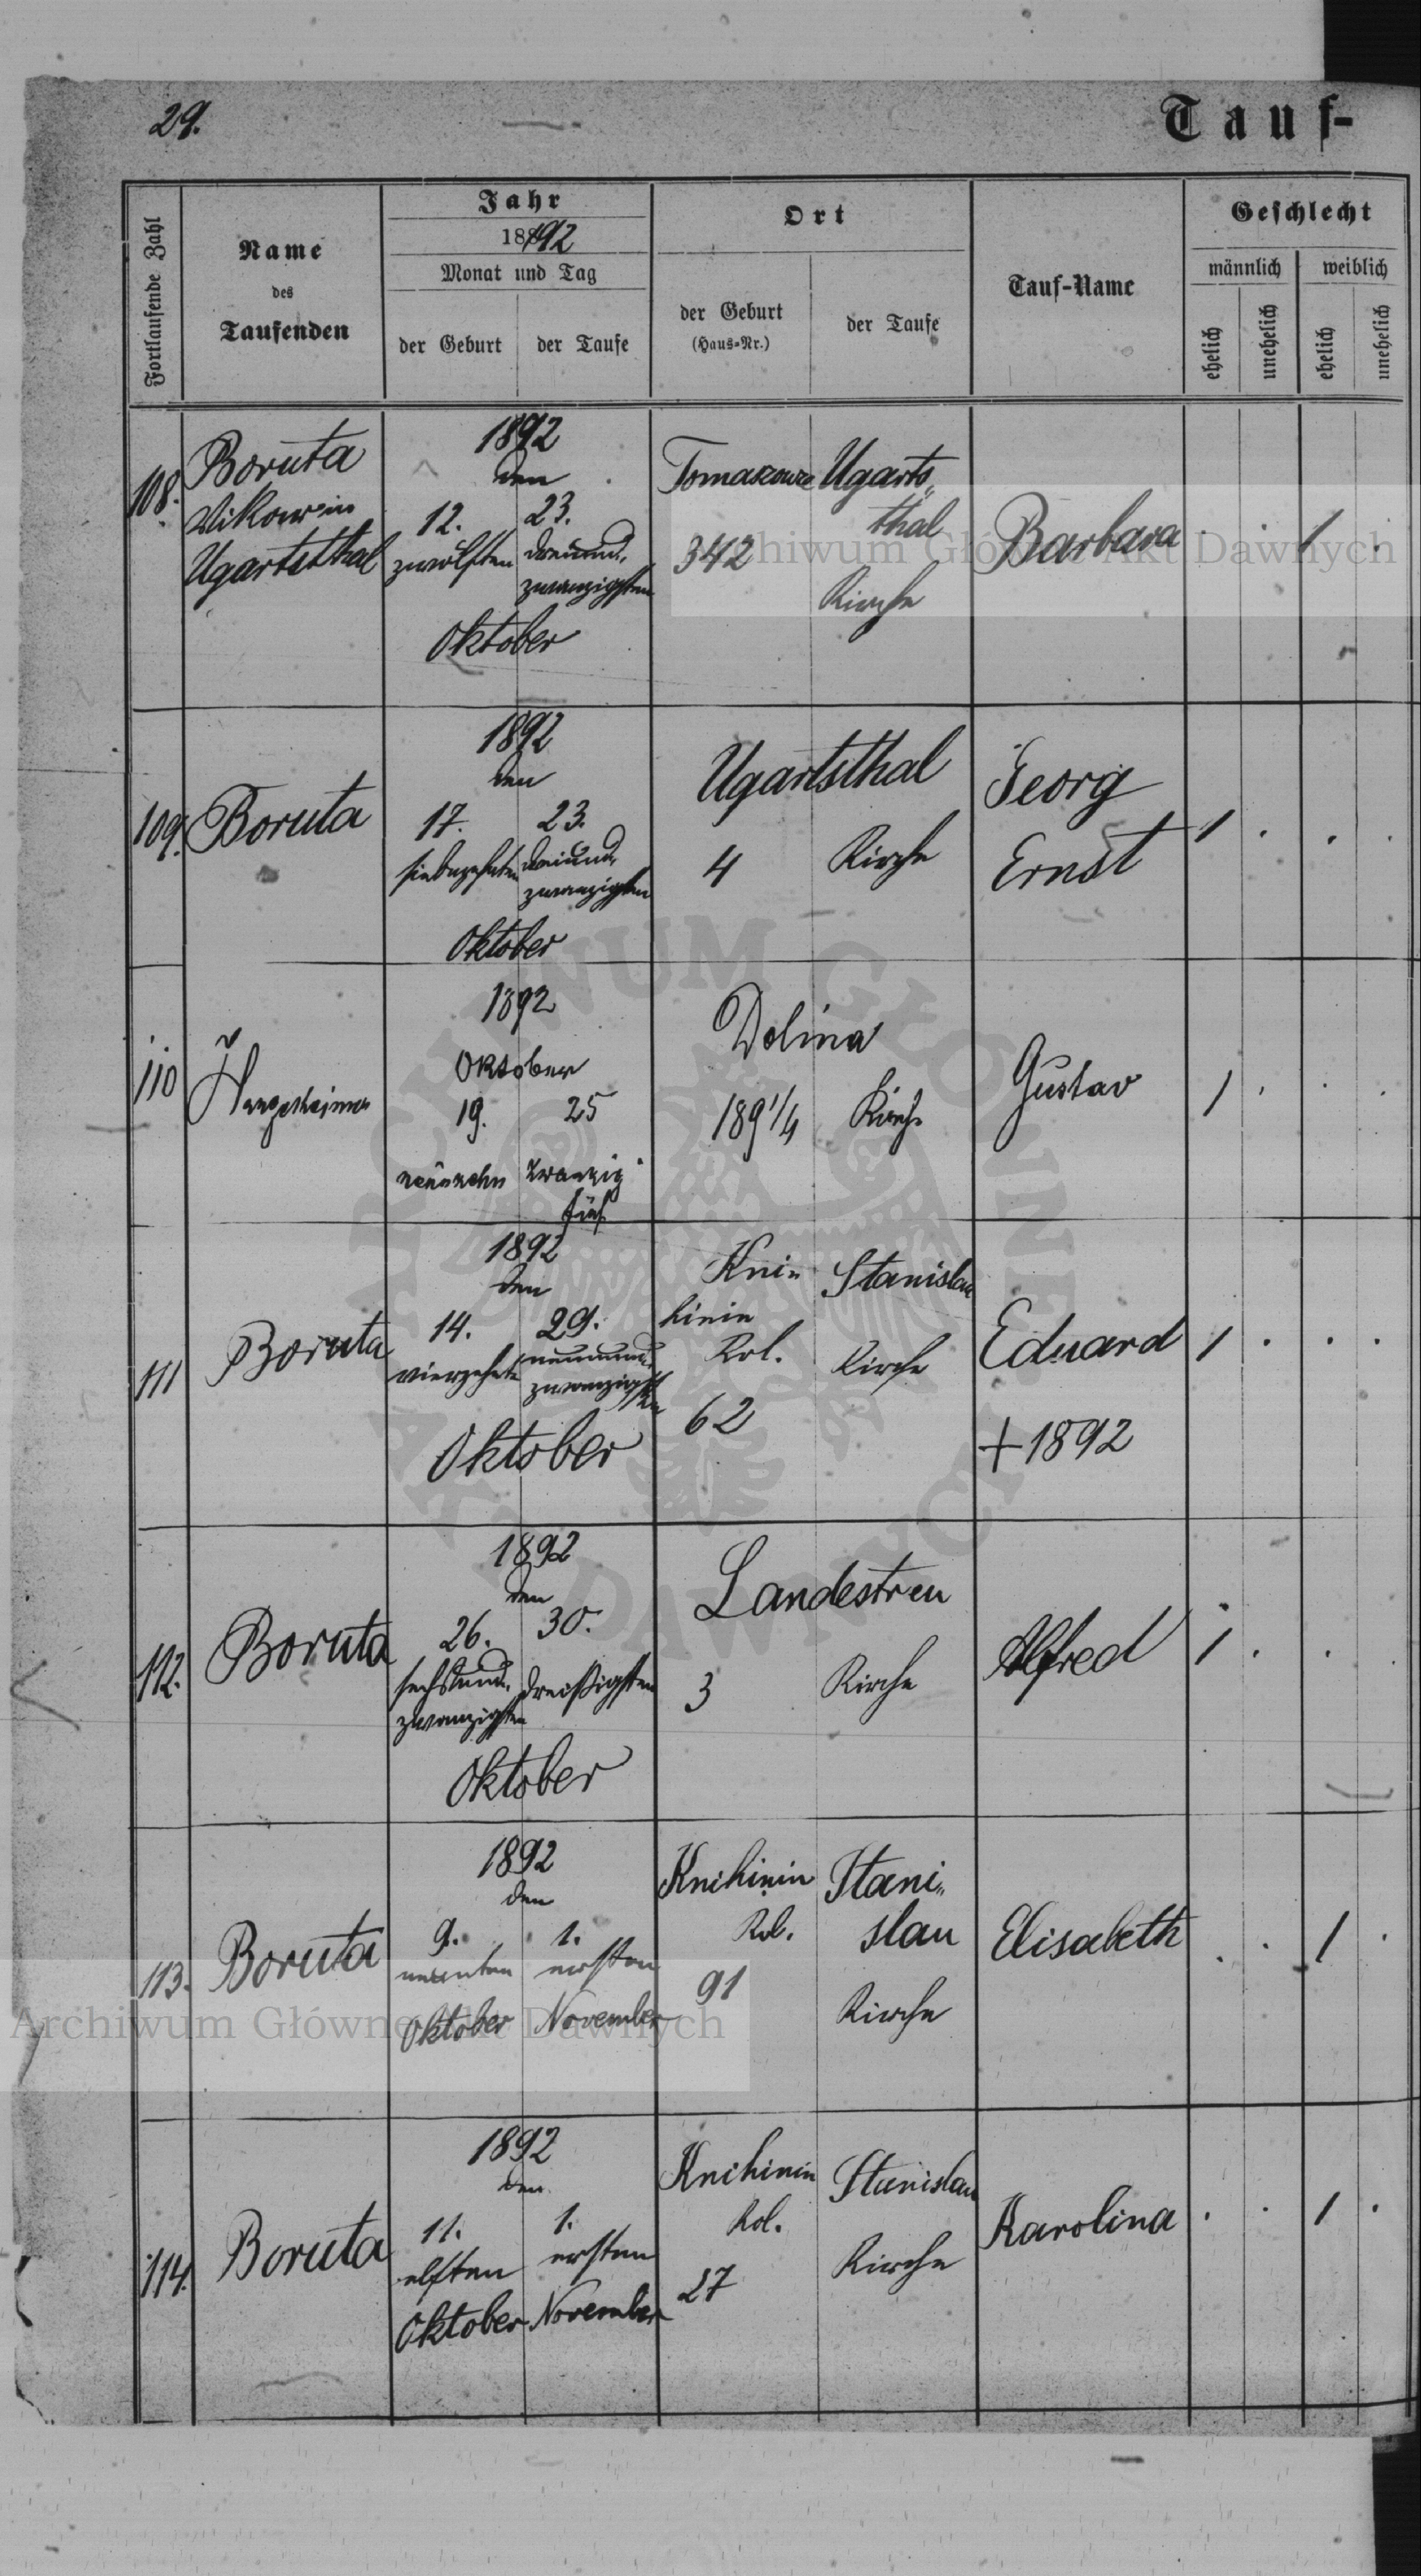 29.
Tauf-
Fortlaufende Zahl
Name
des
Taufenden
Jahr
1892
Monat und Tag
der Geburt
der Taufe
Ort
der Geburt
(Haus-Nr.)
der Taufe
Tauf-Name
Geschlecht
männlich
weiblich
ehelich
unehelich
ehelich
unehelich
108.
Boruta
Vikar in
Ugartsthal
1892
den
12. 23.
zwölften dreiund-
zwanzigsten
Oktober
342
Ugarts-
thal
Kirche
Barbara
1
109.
Boruta
1892
den
17. 23.
siebzehnten dreiund-
zwanzigsten
Oktober
Ugartsthal
4 Kirche
Georg
Ernst
1
110
1892
Oktober
19. 25
neunzehn zwanzig
fünf
Dolina
189 1/4 Kirche
Gustav
1
111
Boruta
1892
den
14. 29.
vierzehnten neunund-
zwanzigsten
Oktober
Kni-
hinin
Kol.
62
Stanislau
Kirche
Eduard
+1892
1
112.
Boruta
1892
den
26. 30.
sechsund- dreißigsten
zwanzigsten
Oktober
Landestreu
3 Kirche
Alfred
1
113.
Boruta
1892
den
9. 1.
neunten ersten
Oktober November
Knihinin
Kol.
91
Stani-
slau
Kirche
Elisabeth
1
114.
Boruta
1892
den
11. 1.
elften ersten
Oktober November
Knihinin
Kol.
27
Stanislau
Kirche
Karolina
1
Archiwum Główne Akt Dawnych
Archiwum Główne Akt Dawnych
ARCHIWUM GŁÓWNE
AKT DAWNYCH